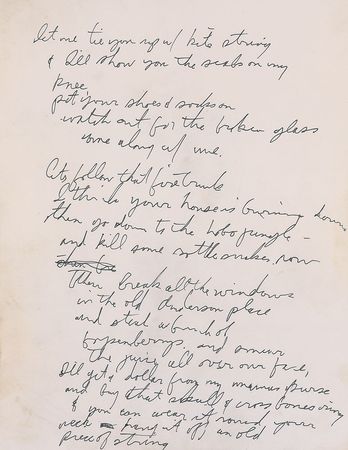 let me tie you up w/ kite string
& I'll show you the scabs on my
knee
put your shoes & socks on
watch out for the broken glass
come along w/ me.
Lets follow that firetruck
I think your house is burning down
then go down to the hobo jungle -
and kill some rattlesnakes, now
then break all the windows
in the old anderson place
and steal a bunch of
boysenberrys and smear
the juice all over our face,
I'll get a dollar from my mamas purse
and buy that skull & cross bones ring
& you can wear it round your
neck hang it off an old
piece of string